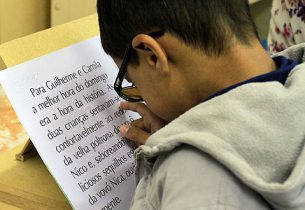 Para Guilherme e Camila
a melhor hora do domingo
era a hora da história. As
duas crianças sentavam-
confortavelmente ao
da velha poltrona
Nico e, saboreando
liciosos sequilhos
da vovó Nica,
mente.